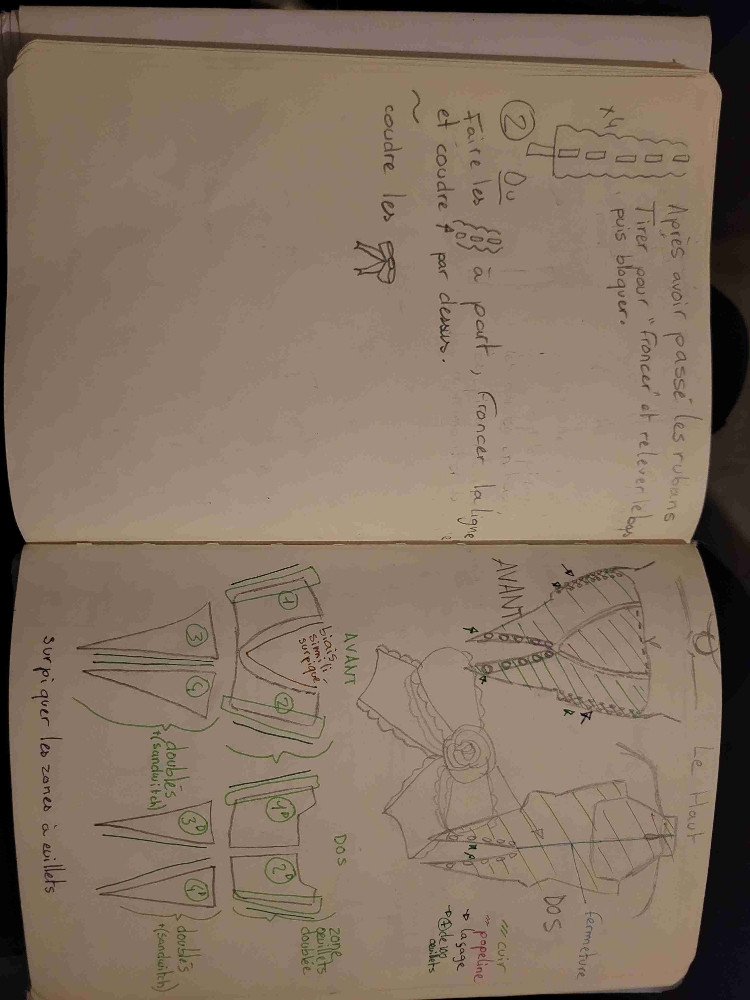 x4
Après avoir passé les rubans
Tirer pour "froncer" et relever le bas
puis bloquer.
② Ou
Faire les à part, froncer la ligne
et coudre par dessus.
~
coudre les
Le Haut
AVANT
DOS
fermeture
/// cuir
/// popeline
→ laçage
→ + de 100
œuillets
AVANT
DOS
1
2
biais
simili
surpiqué
1D
2D
zone
œuillets
doublée
3
4
doublés
+(sandwitch)
3D
4D
doublés
+(sandwitch)
surpiquer les zones à œuillets